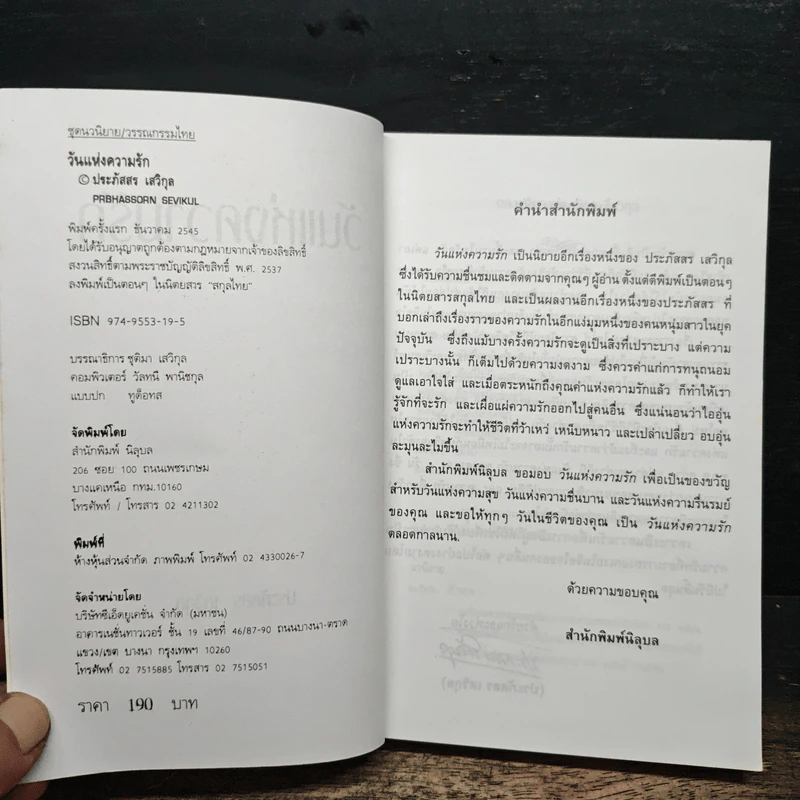 ชุดนวนิยาย/วรรณกรรมไทย
วันแห่งความรัก
© ประภัสสร เสวิกุล
PRBHASSORN SEVIKUL
พิมพ์ครั้งแรก ธันวาคม 2545
โดยได้รับอนุญาตถูกต้องตามกฎหมายจากเจ้าของลิขสิทธิ์
สงวนสิทธิ์ตามพระราชบัญญัติลิขสิทธิ์ พ.ศ. 2537
ลงพิมพ์เป็นตอนๆ ในนิตยสาร "สกุลไทย"
ISBN 974-9553-19-5
บรรณาธิการ ชุติมา เสวิกุล
คอมพิวเตอร์ วัลทนี พานิชกุล
แบบปก ทูต็อทส
จัดพิมพ์โดย
สำนักพิมพ์ นิลุบล
206 ซอย 100 ถนนเพชรเกษม
บางแคเหนือ กทม.10160
โทรศัพท์ / โทรสาร 02 4211302
พิมพ์ที่
ห้างหุ้นส่วนจำกัด ภาพพิมพ์ โทรศัพท์ 02 4330026-7
จัดจำหน่ายโดย
บริษัทซีเอ็ดยูเคชั่น จำกัด (มหาชน)
อาคารเนชั่นทาวเวอร์ ชั้น 19 เลขที่ 46/87-90 ถนนบางนา-ตราด
แขวง/เขต บางนา กรุงเทพฯ 10260
โทรศัพท์ 02 7515885 โทรสาร 02 7515051
ราคา 190 บาท
คำนำสำนักพิมพ์
วันแห่งความรัก เป็นนิยายอีกเรื่องหนึ่งของ ประภัสสร เสวิกุล
ซึ่งได้รับความชื่นชมและติดตามจากคุณๆ ผู้อ่าน ตั้งแต่ตีพิมพ์เป็นตอนๆ
ในนิตยสารสกุลไทย และเป็นผลงานอีกเรื่องหนึ่งของประภัสสร ที่
บอกเล่าถึงเรื่องราวของความรักในอีกแง่มุมหนึ่งของคนหนุ่มสาวในยุค
ปัจจุบัน ซึ่งถึงแม้บางครั้งความรักจะดูเป็นสิ่งที่เปราะบาง แต่ความ
เปราะบางนั้น ก็เต็มไปด้วยความงดงาม ซึ่งควรค่าแก่การทนุถนอม
ดูแลเอาใจใส่ และเมื่อตระหนักถึงคุณค่าแห่งความรักแล้ว ก็ทำให้เรา
รู้จักที่จะรัก และเผื่อแผ่ความรักออกไปสู่คนอื่น ซึ่งแน่นอนว่าไออุ่น
แห่งความรักจะทำให้ชีวิตที่ว้าเหว่ เหน็บหนาว และเปล่าเปลี่ยว อบอุ่น
ละมุนละไมขึ้น
สำนักพิมพ์นิลุบล ขอมอบ วันแห่งความรัก เพื่อเป็นของขวัญ
สำหรับวันแห่งความสุข วันแห่งความชื่นบาน และวันแห่งความรื่นรมย์
ของคุณ และขอให้ทุกๆ วันในชีวิตของคุณ เป็น วันแห่งความรัก
ตลอดกาลนาน.
ด้วยความขอบคุณ
สำนักพิมพ์นิลุบล